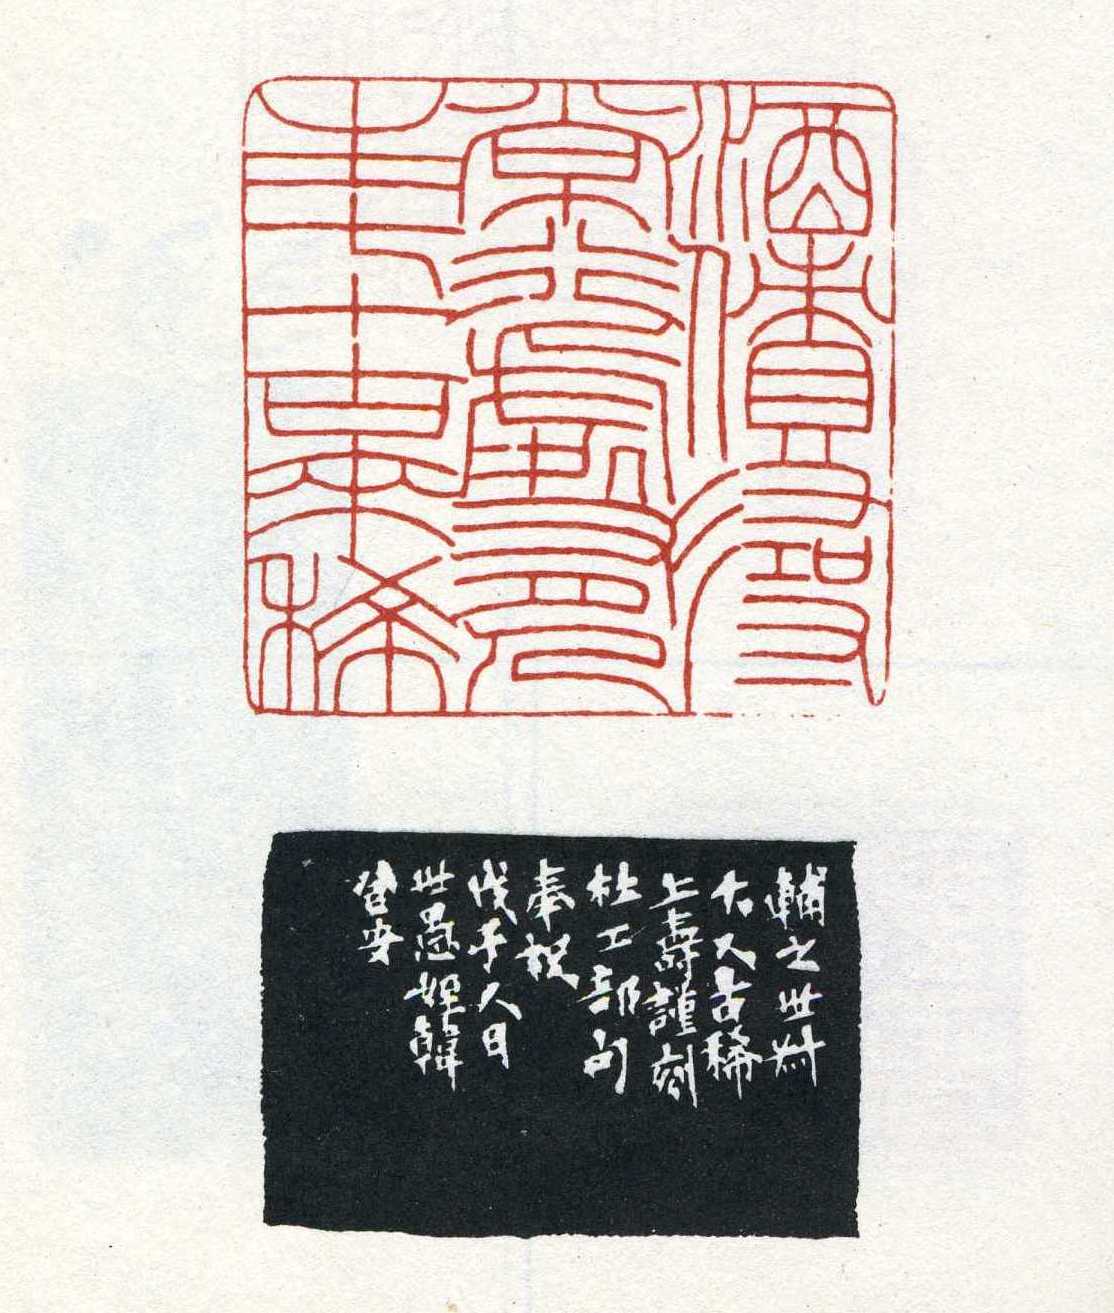 酒債尋
常行處有人
生七十古來稀
輔之世叔
大人古稀
上壽謹刻
杜工部句
奉祝
戊子人日
世愚姪韓
登安